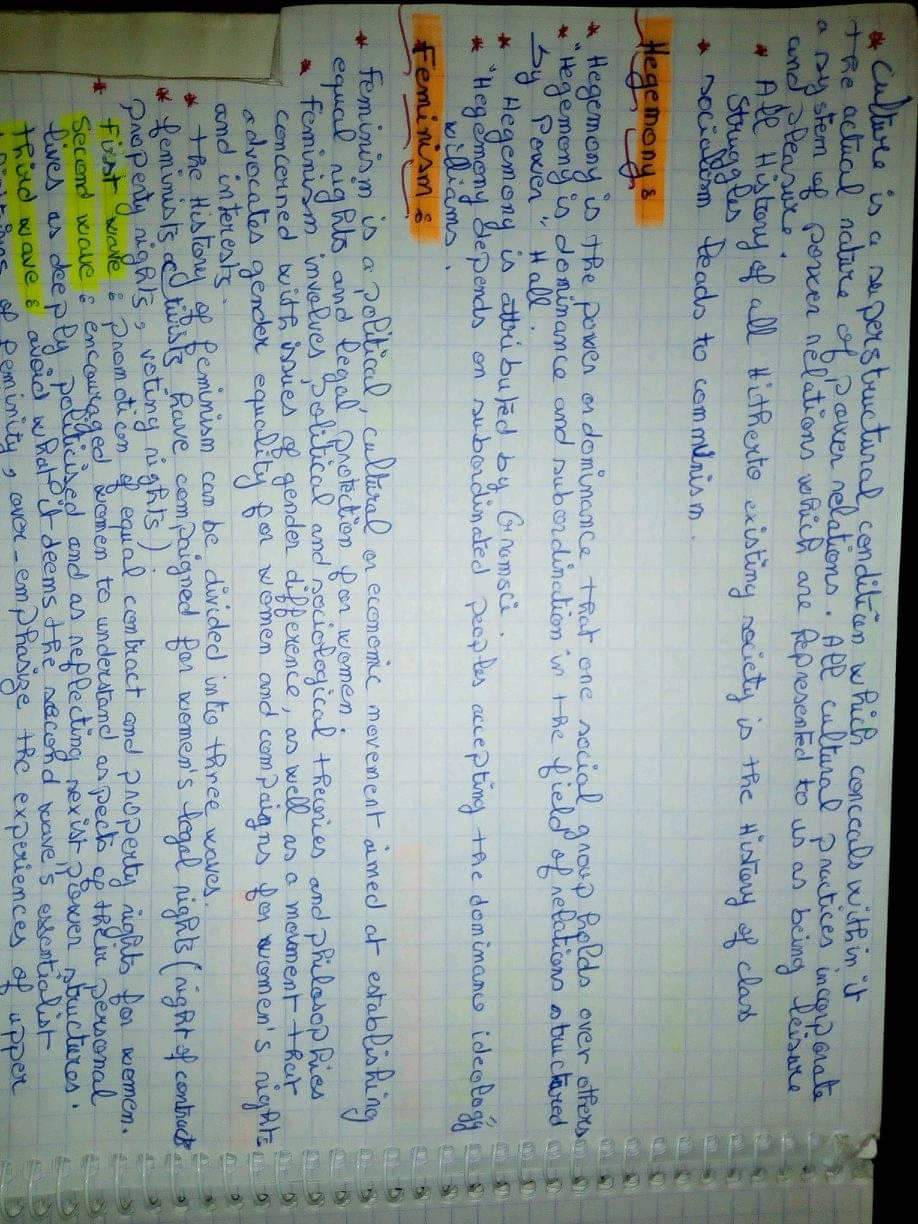 * Culture is a superstructural condition which conceals within it
the actual nature of power relations. All cultural practices incorporate
a system of power relations which are Represented to us as being leisure
and pleasure.
* All History of all Hitherto existing society is the History of class
Struggles
* socialism leads to communism.
Hegemony:
* Hegemony is the power or dominance that one social group holds over others
* "Hegemony is dominance and subordination in the field of relations structured
by Power" Hall.
* Hegemony is attributed by Gramsci.
* "Hegemony depends on subordinated peoples accepting the dominance ideology"
williams.
Feminism:
* Feminism is a political, cultural or economic movement aimed at establishing
equal rights and legal protection for women
* Feminism involves political and sociological theories and philosophies
concerned with issues of gender difference, as well as a movement that
advocates gender equality for women and compaigns for women's rights
and interests.
* the History of feminism can be divided into three waves.
* feminists activists have compaigned for women's legal rights (right of contract
Property rights, voting rights)
* First wave: promotion of equal contract and property rights for women.
Second wave: encouraged women to understand aspects of their personal
lives as deeply politicised and as reflecting sexist power structures.
third wave: avoid what it deems the second wave's essentialist
of feminity, over-emphasize the experiences of upper